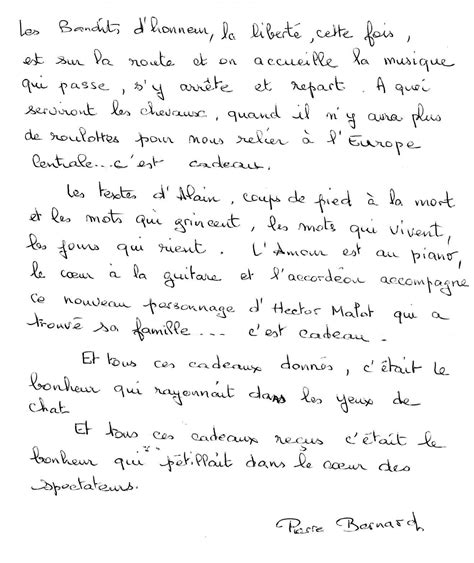 Les Bandits d'honneur, la liberté, cette fois,
est sur la route et on accueille la musique
qui passe, s'y arrête et repart. A quoi
serviront les chevaux, quand il n'y aura plus
de roulottes pour nous relier à l'Europe
Centrale...c'est cadeau.
Les textes d'Alain, coups de pied à la mort
et les mots qui grincent, les mots qui vivent,
les fous qui rient. L'Amour est au piano,
le cœur à la guitare et l'accordéon accompagne
ce nouveau personnage d'Hector Malot qui a
trouvé sa famille... c'est cadeau.
Et tous ces cadeaux donnés, c'était le
bonheur qui rayonnait dans les yeux de
chat
Et tous ces cadeaux reçus c'était le
bonheur qui pétillait dans le cœur des
spectateurs.
Pierre Bernard